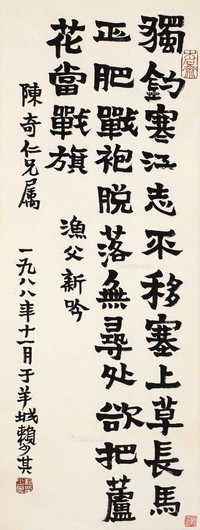 獨釣寒江志不移塞上草長馬
正肥戰袍脱落無尋处欲把蘆
花當戰旗
漁父新吟
陳奇仁兄属
一九八八年十二月于羊城賴少其